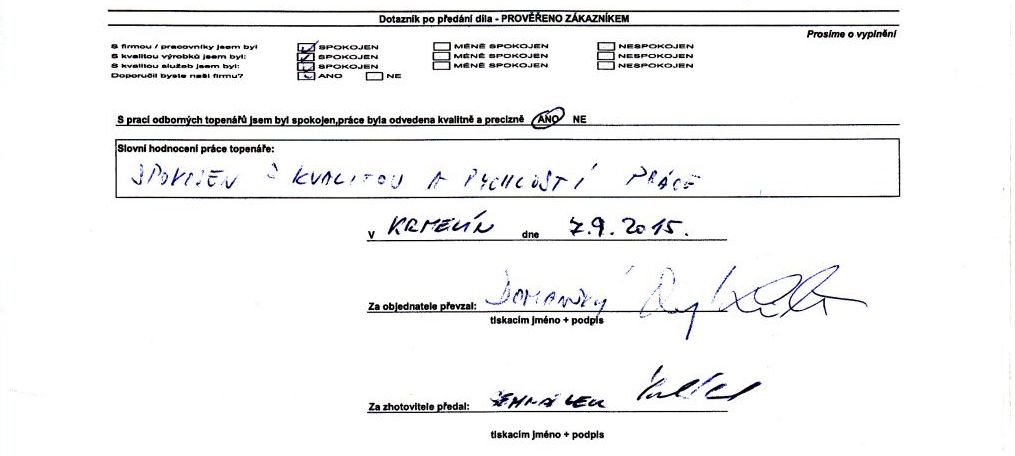 Dotazník po předání díla - PROVĚŘENO ZÁKAZNÍKEM
Prosíme o vyplnění
S firmou / pracovníky jsem byl SPOKOJEN MÉNĚ SPOKOJEN NESPOKOJEN
S kvalitou výrobků jsem byl: SPOKOJEN MÉNĚ SPOKOJEN NESPOKOJEN
S kvalitou služeb jsem byl: SPOKOJEN MÉNĚ SPOKOJEN NESPOKOJEN
Doporučil byste naší firmu? ANO NE
S prací odborných topenářů jsem byl spokojen,práce byla odvedena kvalitně a precizně ANO NE
Slovní hodnocení práce topenáře:
SPOKOJEN S KVALITOU A RYCHLOSTÍ PRÁCE
V KRMELÍN dne 7.9.2015.
Za objednatele převzal: DOMANSKÝ
tiskacím jméno + podpis
Za zhotovitele předal:
tiskacím jméno + podpis